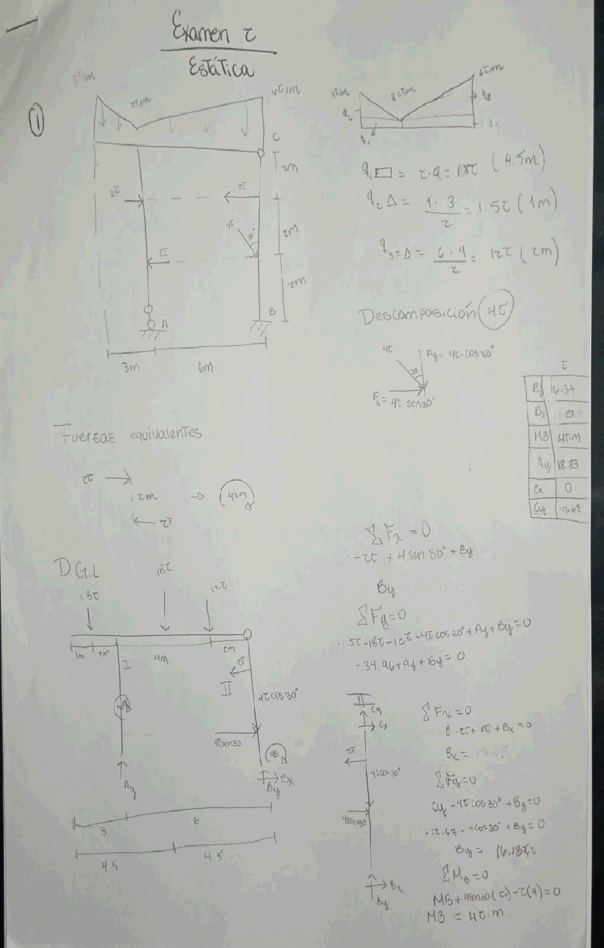 Examen 2
Estática
①
3T/m
6T/m
C
2m
2T
2T
2m
2T
2m
A
B
3m
6m
3T/m
6T/m
q₁ ▭ = 2·9 = 18T (4.5m)
q₂ Δ = 1·3/2 = 1.5T (1m)
q₃ = Δ = 6·4/2 = 12T (2m)
Descomposición 4T
4T
Fy = 4T·cos30°
30
Fx = 4T·sen30°
T
16.37
0
MB 4T·m
Ay 18.83
Cx 0
Cy
Fuerzas equivalentes
2T
2m
2T
D.G.L
1.5T
18T
12T
1m
2m
4m
2m
I
II
4Tcos30°
4Tsen30
Ay
Bx
By
3
6
4.5
4.5
ΣFx = 0
-2T + 4sen30° + By
By
ΣFy = 0
-1.5T-18T-12T-4Tcos30°+Ay+By=0
-34.96+Ay+By=0
II
Cy
Cx
2T
4Tcos30°
4Tsen30
Bx
By
ΣFx = 0
Bx =
ΣFy = 0
Cy - 4Tcos30° + By = 0
-12.67 - 4cos30° + By = 0
By =
ΣM_B = 0
MB + 4sen30(2) - 2(4) = 0
MB = 4T·m